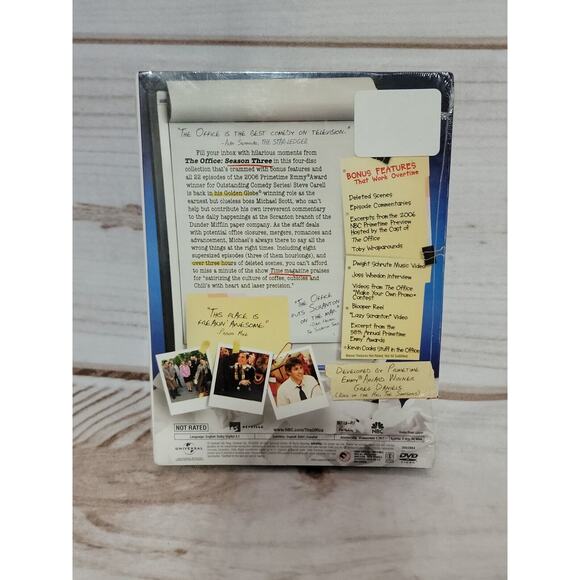 "THE OFFICE IS THE BEST COMEDY ON TELEVISION."
THE STAR-LEDGER
Fill your inbox with hilarious moments from
The Office: Season Three in this four-disc
collection that's crammed with bonus features and
all 22 episodes of the 2006 Primetime Emmy® Award
winner for Outstanding Comedy Series! Steve Carell
is back in his Golden Globe®-winning role as the
earnest but clueless boss Michael Scott, who can't
help but contribute his own irreverent commentary
to the daily happenings at the Scranton branch of the
Dunder Mifflin paper company. As the staff deals
with potential office closures, mergers, romances and
advancement, Michael's always there to say all the
wrong things at the right times. Including eight
supersized episodes (three of them hourlong), and
over three hours of deleted scenes, you can't afford
to miss a minute of the show Time magazine praises
for "satirizing the culture of coffee, cubicles and
Chili's with heart and laser precision."
BONUS FEATURES
That Work Overtime
Deleted Scenes
Episode Commentaries
Excerpts from the 2006
NBC Primetime Preview
Hosted by the Cast of
The Office
Toby Wraparounds
Dwight Schrute Music Video
Joss Whedon Interview
Videos from The Office
"Make Your Own Promo"
Contest
Blooper Reel
"Lazy Scranton" Video
Excerpt from the
58th Annual Primetime
Emmy® Awards
Kevin Cooks Stuff in the Office
"THIS PLACE IS
FREAKIN' AWESOME."
"THE OFFICE
PUTS SCRANTON
ON THE MAP."
DEVELOPED BY PRIMETIME
EMMY® AWARD WINNER
GREG DANIELS
(KING OF THE HILL, THE SIMPSONS)
NOT RATED
REVEILLE
www.NBC.com/TheOffice
NBC
UNIVERSAL
DVD